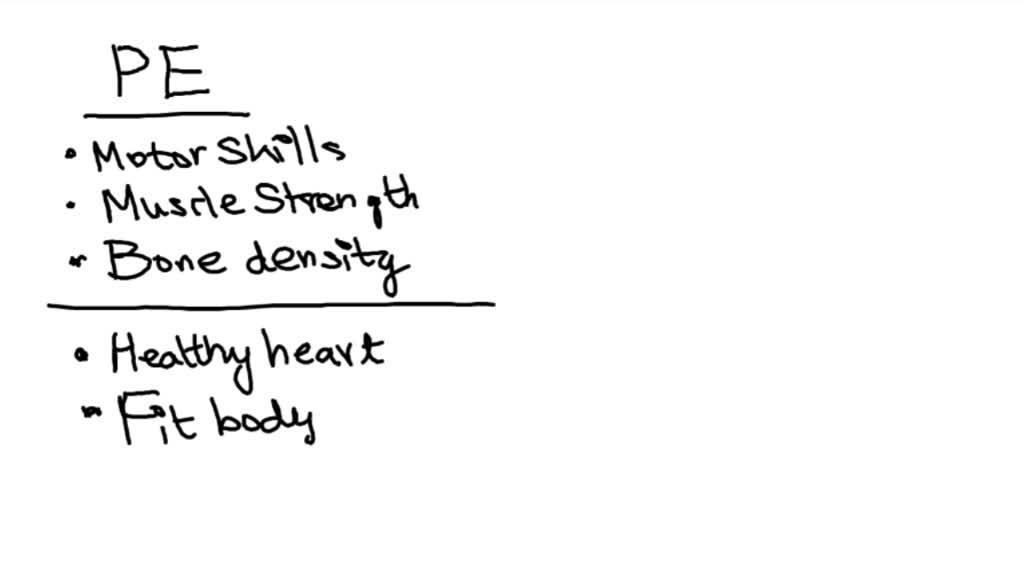 PE
• Motor Skills
• Muscle Strength
• Bone density
• Healthy heart
• Fit body